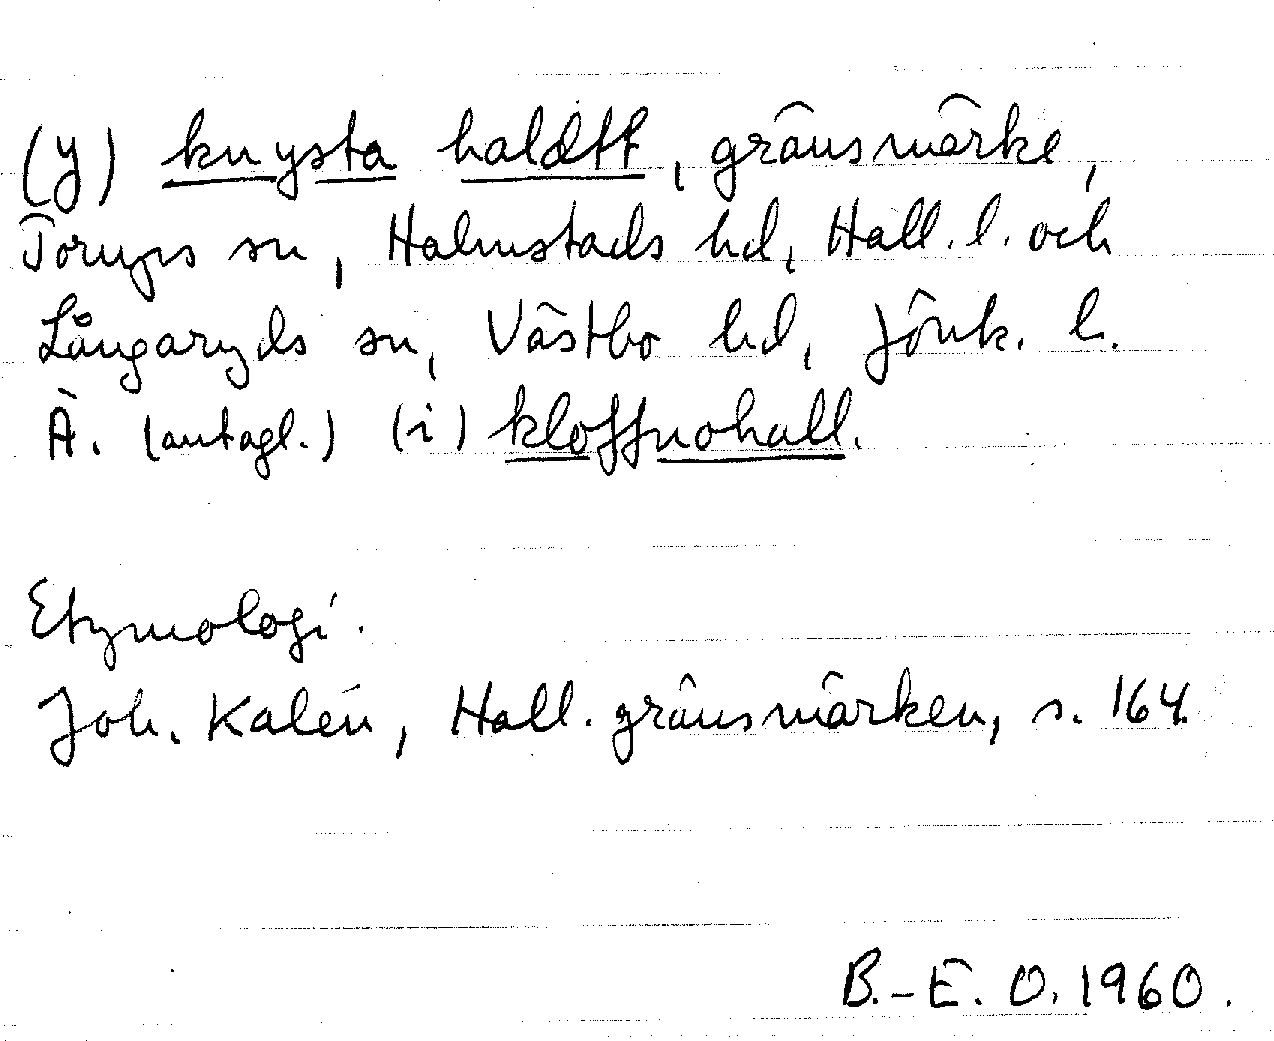 (y) knysta haldtt, gränsmärke,
Torups sn, Halmstads hd, Hall. l. och
Långaryds sn, Västbo hd, Jönk. l.
Ä. (antagl.) (i) kloffnohall.
Etymologi.
Joh. Kalén, Hall. gränsmärken, s. 164.
B.-E. O. 1960.